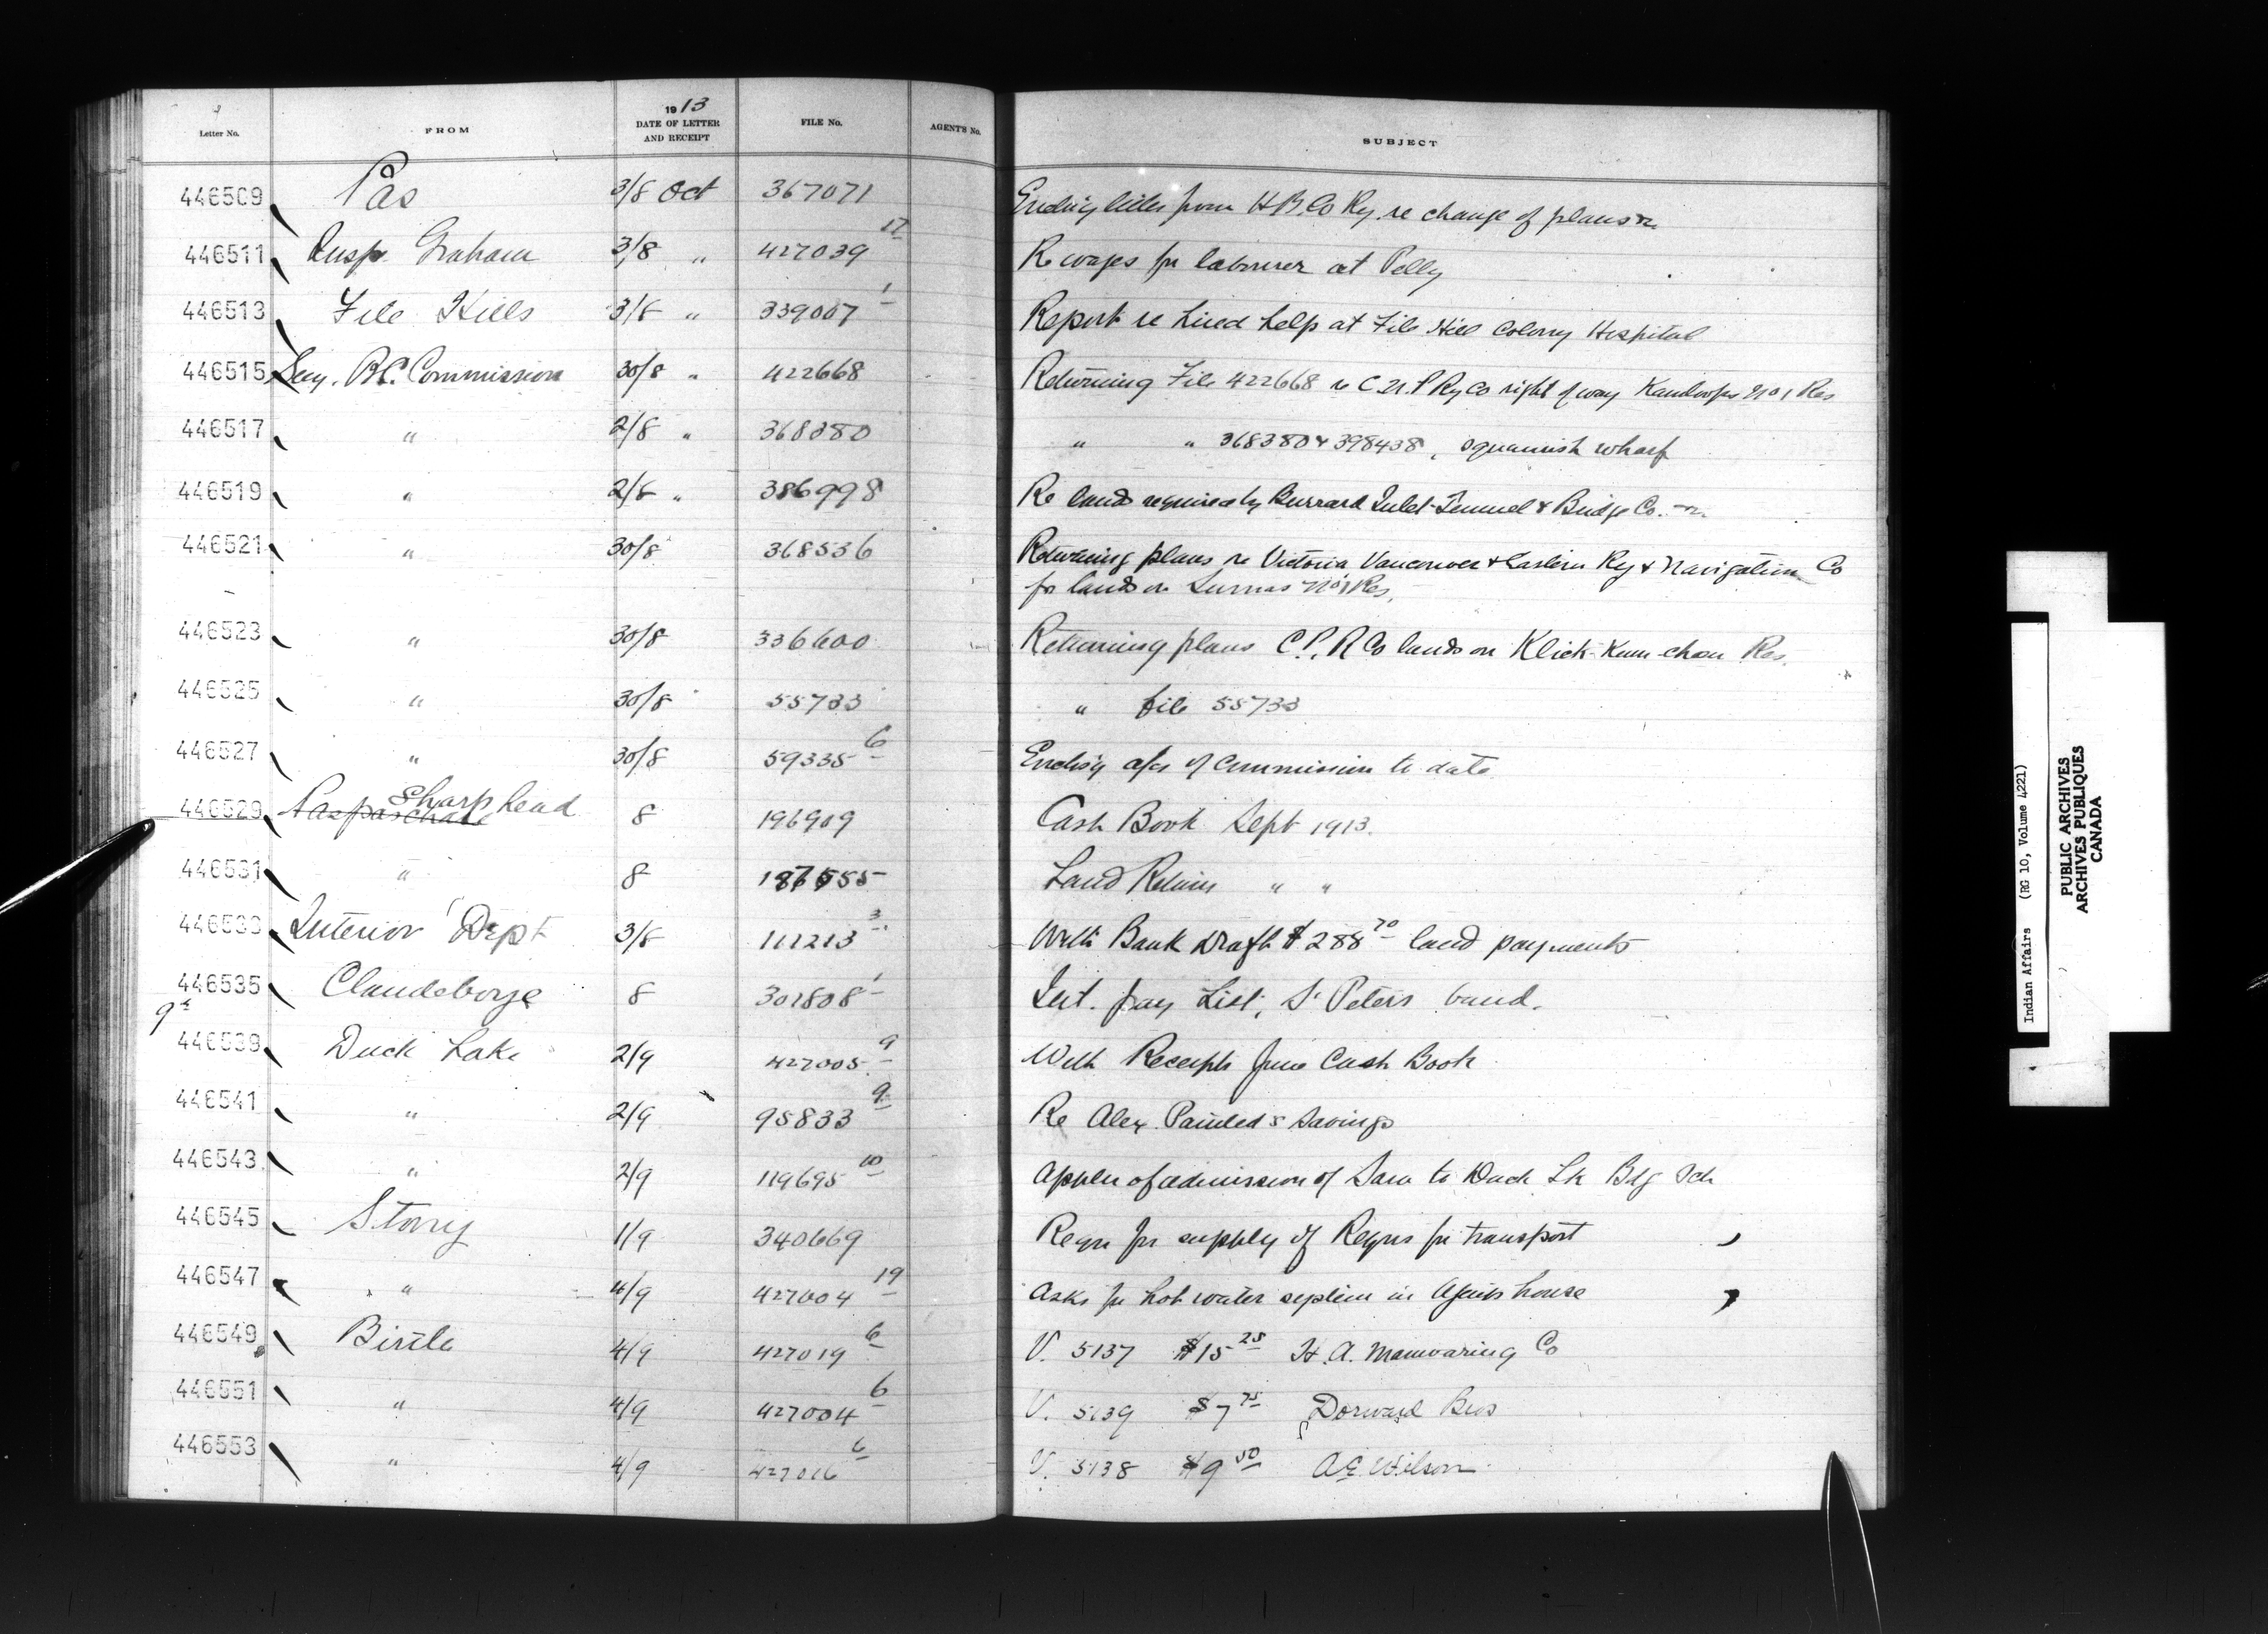 Letter No. FROM 1913 DATE OF LETTER AND RECEIPT FILE No. AGENT'S No. SUBJECT
446509 Pas 3/8 Oct 367071 Enclo'g letter from H.B.Co Ry. re change of plans
446511 Insp. Graham 3/8 " 427039 17 Re wages for labourer at Pelly
446513 File Hills 3/8 " 339007 1 Report re hired help at File Hill Colony Hospital
446515 Secy. B.C. Commission 30/8 " 422668 Returning File 422668 re C.N.P Ry Co right of way Kamloops No 1 Res
446517 " 2/8 " 368380 " " 368380 & 398438, Squamish wharf
446519 " 2/8 " 386998 Re lands required by Burrard Inlet Tunnel & Bridge Co.
446521 " 30/8 " 368536 Returning plans re Victoria Vancouver & Eastern Ry & Navigation Co
for lands on Sumas No 1 Res.
446523 " 30/8 336600 Returning plans C.P.R Co lands on Klick-Kum-chou Res.
446525 " 30/8 55733 " file 55733
446527 " 30/8 59335 6 Enclo'g a/cs of Commission to date
446529 Paspaschase Sharphead 8 196909 Cash Book Sept 1913.
446531 " 8 Land Return " "
446533 Interior Dept 3/8 111213 3 With Bank Draft $288 70 land payments
446535 Clandeboye 8 301808 1 Int. pay List, St Peters band.
9th
446539 Duck Lake 2/9 427005 9 With Receipts June Cash Book
446541 " 2/9 95833 9 Re Alex. Painted's Savings
446543 " 2/9 119695 10 Applen of admission of Sam to Duck Lk Bdg Sch
446545 Stony 1/9 340669 Reqn for supply of Reqns for transport
446547 " 4/9 427004 19 Asks for hot water system in Agents house
446549 Birtle 4/9 427019 6 V. 5137 $15 25 H.A. Manwaring Co
446551 " 4/9 427004 6 V. 5139 $7 75 Dorward Bros
446553 " 4/9 427016 6 V. 5138 $9 50 A.E. Wilson
Indian Affairs (RG 10, Volume 4221)
PUBLIC ARCHIVES
ARCHIVES PUBLIQUES
CANADA